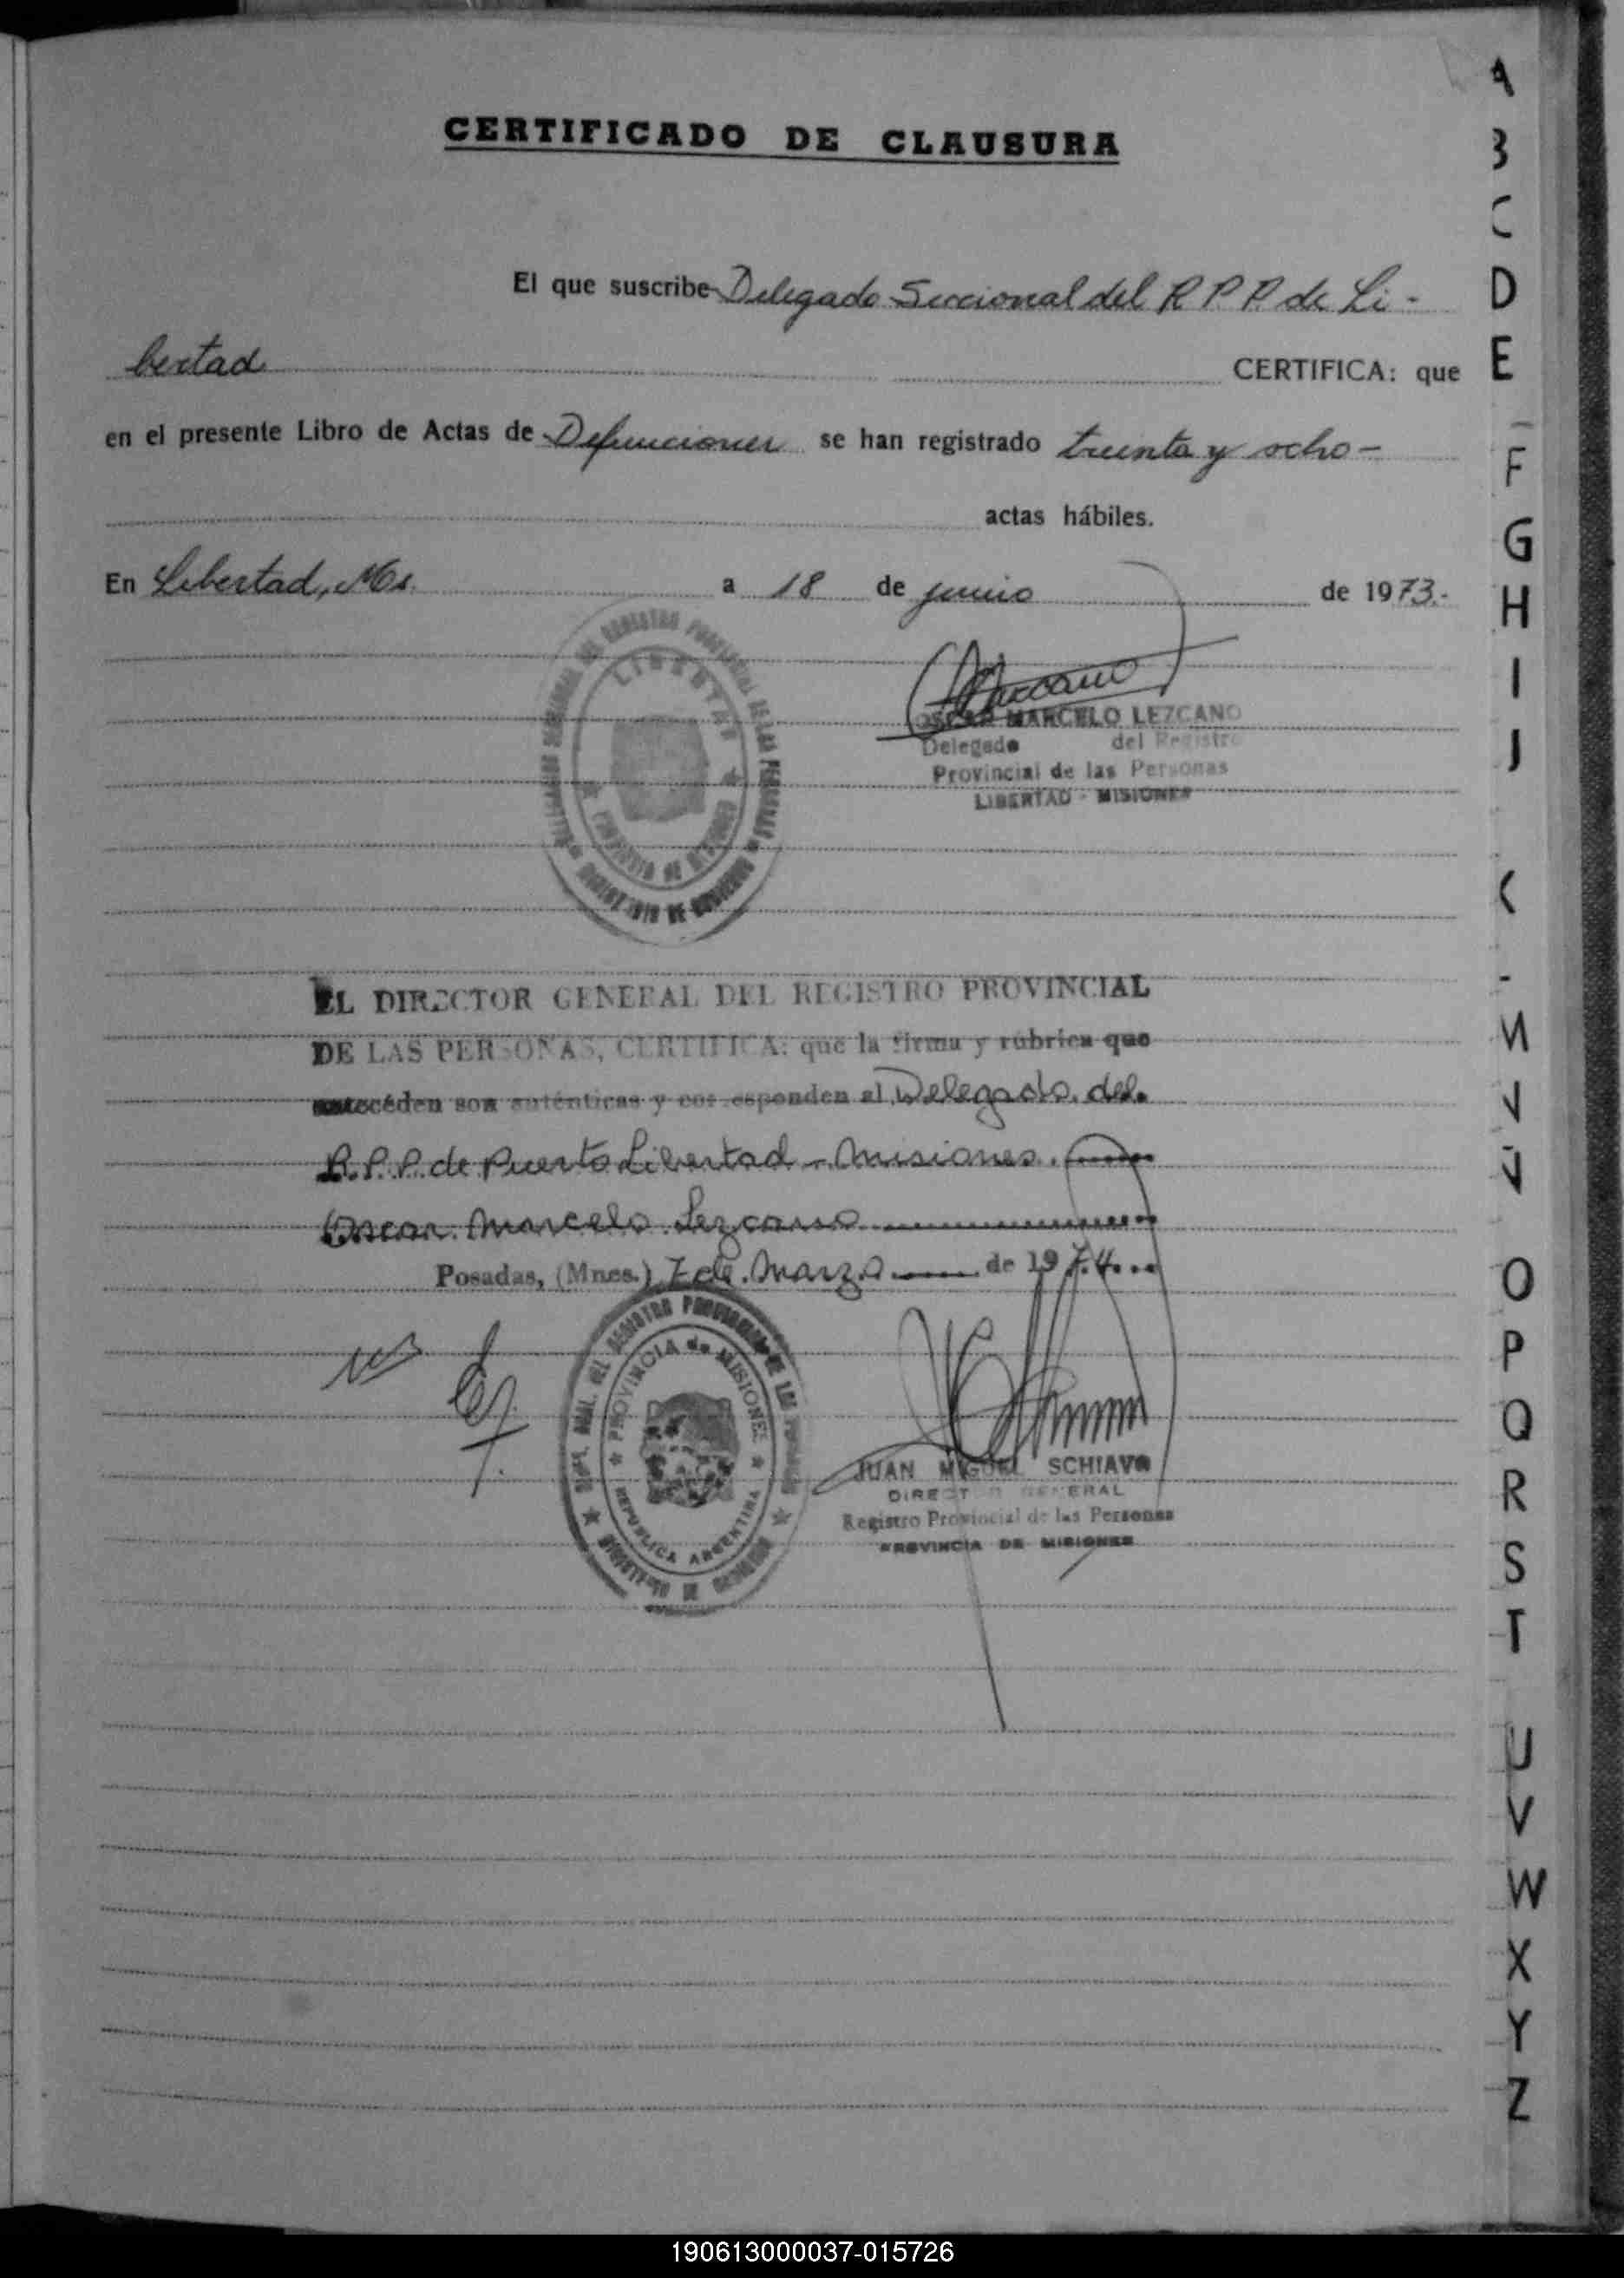 CERTIFICADO DE CLAUSURA
El que suscribe Delegado Seccional del R P P. de Li-
bertad CERTIFICA: que
en el presente Libro de Actas de Defunciones se han registrado treinta y ocho-
actas hábiles.
En Libertad, Ms. a 18 de junio de 1973.-
LIBERTAD
PROVINCIA DE MISIONES
OSCAR MARCELO LEZCANO
Delegado del Registro
Provincial de las Personas
LIBERTAD - MISIONES
EL DIRECTOR GENERAL DEL REGISTRO PROVINCIAL
DE LAS PERSONAS, CERTIFICA: que la firma y rúbrica que
anteceden son auténticas y corresponden al Delegado del
R.P.P. de Puerto Libertad - Misiones.
Oscar Marcelo Lezcano
Posadas, (Mnes.) 7 de Marzo de 1974
DEL REGISTRO PROVINCIAL DE LAS PERSONAS
PROVINCIA de MISIONES
REPUBLICA ARGENTINA
MINISTERIO DE GOBIERNO
JUAN MIGUEL SCHIAVO
DIRECTOR GENERAL
Registro Provincial de las Personas
PROVINCIA DE MISIONES
A
B
C
D
E
F
G
H
I
J
K
M
N
Ñ
O
P
Q
R
S
T
U
V
W
X
Y
Z
190613000037-015726